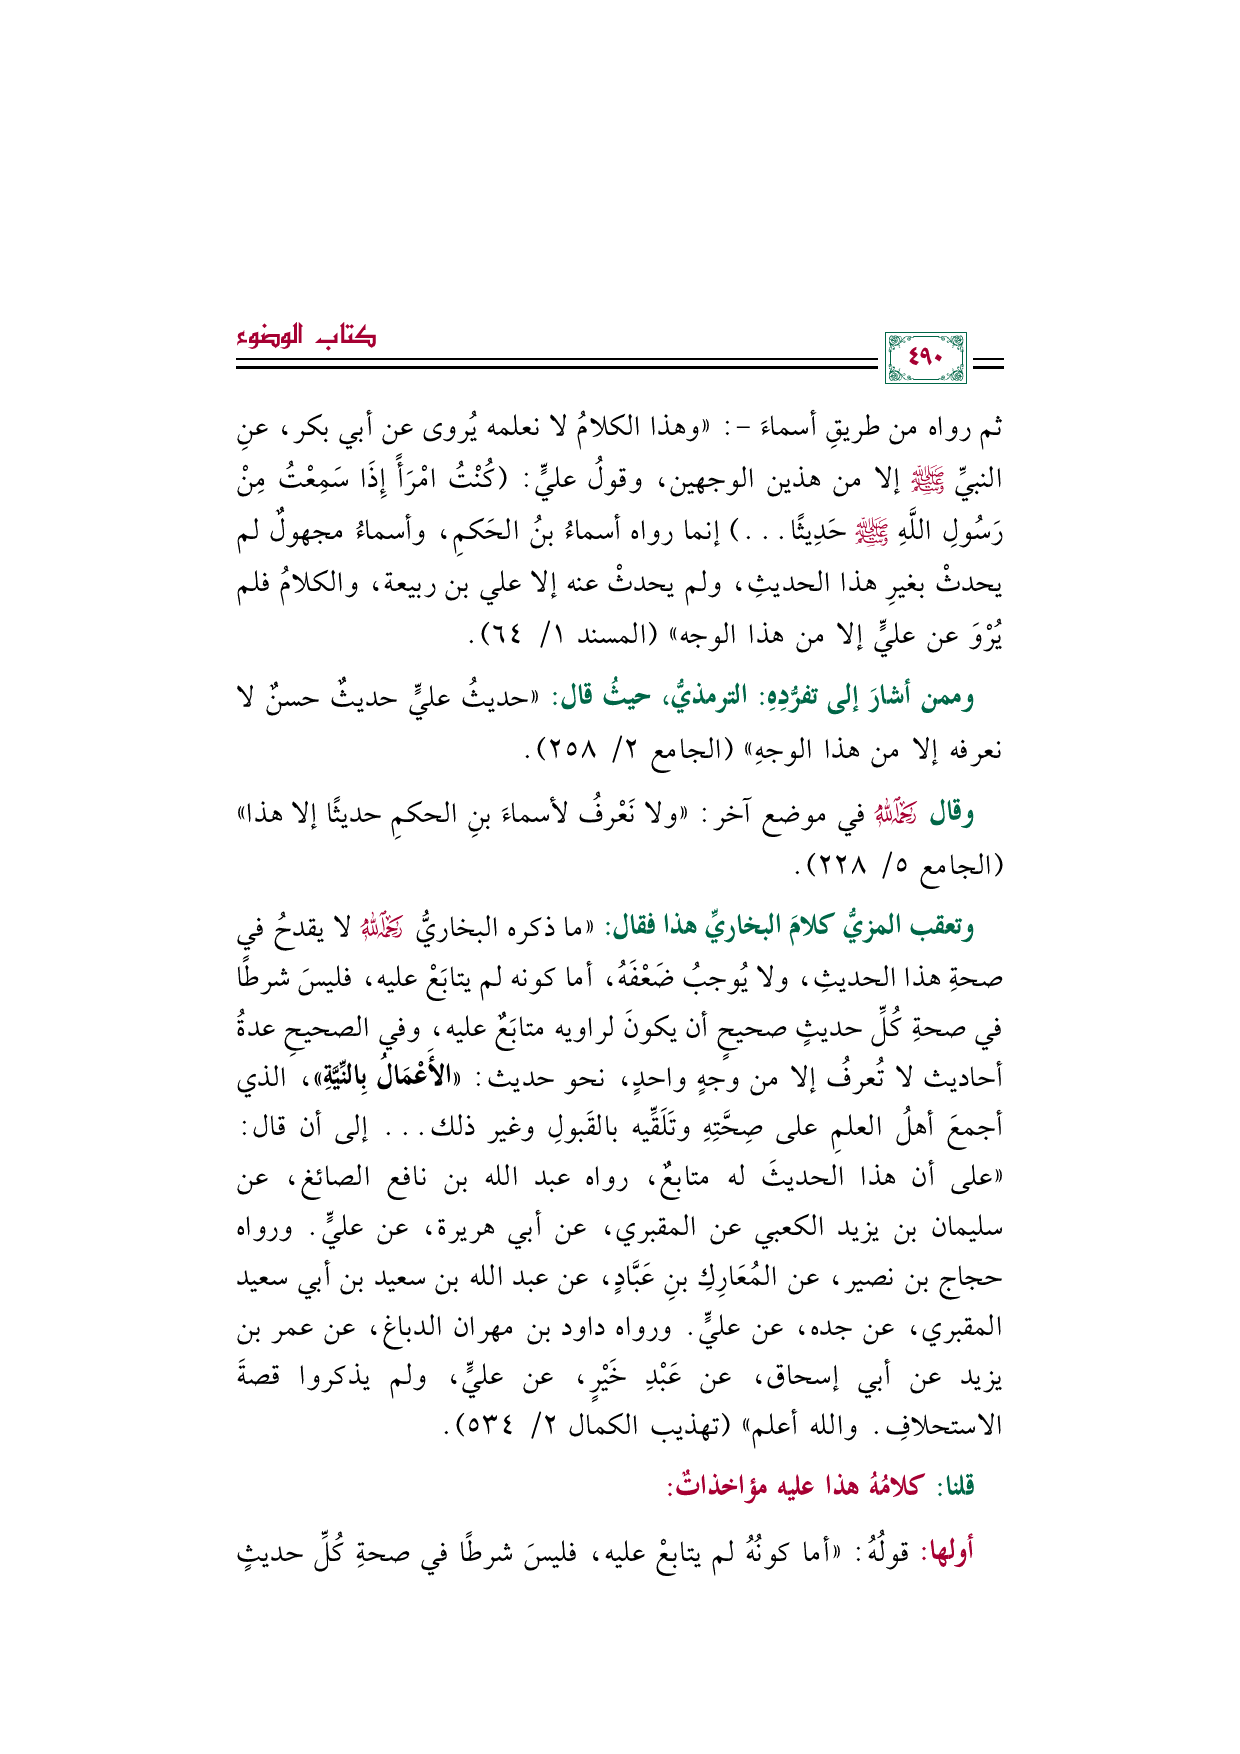 كتاب الوضوء
٤٩٠
ثم رواه من طريقِ أسماءَ -: «وهذا الكلامُ لا نعلمه يُروى عن أبي بكر، عنِ
النبيِّ ﷺ إلا من هذين الوجهين، وقولُ عليٍّ: (كُنْتُ امْرَأً إِذَا سَمِعْتُ مِنْ
رَسُولِ اللَّهِ ﷺ حَدِيثًا...) إنما رواه أسماءُ بنُ الحَكمِ، وأسماءُ مجهولٌ لم
يحدثْ بغيرِ هذا الحديثِ، ولم يحدثْ عنه إلا علي بن ربيعة، والكلامُ فلم
يُرْوَ عن عليٍّ إلا من هذا الوجه» (المسند ١/ ٦٤).
وممن أشارَ إلى تفرُّدِهِ: الترمذيُّ، حيثُ قال: «حديثُ عليٍّ حديثٌ حسنٌ لا
نعرفه إلا من هذا الوجهِ» (الجامع ٢/ ٢٥٨).
وقال رحمه الله في موضع آخر: «ولا نَعْرفُ لأسماءَ بنِ الحكمِ حديثًا إلا هذا»
(الجامع ٥/ ٢٢٨).
وتعقب المزيُّ كلامَ البخاريِّ هذا فقال: «ما ذكره البخاريُّ رحمه الله لا يقدحُ في
صحةِ هذا الحديثِ، ولا يُوجبُ ضَعْفَهُ، أما كونه لم يتابَعْ عليه، فليسَ شرطًا
في صحةِ كُلِّ حديثٍ صحيحٍ أن يكونَ لراويه متابَعٌ عليه، وفي الصحيحِ عدةُ
أحاديث لا تُعرفُ إلا من وجهٍ واحدٍ، نحو حديث: «الأَعْمَالُ بِالنِّيَّةِ»، الذي
أجمعَ أهلُ العلمِ على صِحَّتِهِ وتَلَقِّيه بالقَبولِ وغير ذلك... إلى أن قال:
«على أن هذا الحديثَ له متابعٌ، رواه عبد الله بن نافع الصائغ، عن
سليمان بن يزيد الكعبي عن المقبري، عن أبي هريرة، عن عليٍّ. ورواه
حجاج بن نصير، عن المُعَارِكِ بنِ عَبَّادٍ، عن عبد الله بن سعيد بن أبي سعيد
المقبري، عن جده، عن عليٍّ. ورواه داود بن مهران الدباغ، عن عمر بن
يزيد عن أبي إسحاق، عن عَبْدِ خَيْرٍ، عن عليٍّ، ولم يذكروا قصةَ
الاستحلافِ. والله أعلم» (تهذيب الكمال ٢/ ٥٣٤).
قلنا: كلامُهُ هذا عليه مؤاخذاتٌ:
أولها: قولُهُ: «أما كونُهُ لم يتابعْ عليه، فليسَ شرطًا في صحةِ كُلِّ حديثٍ